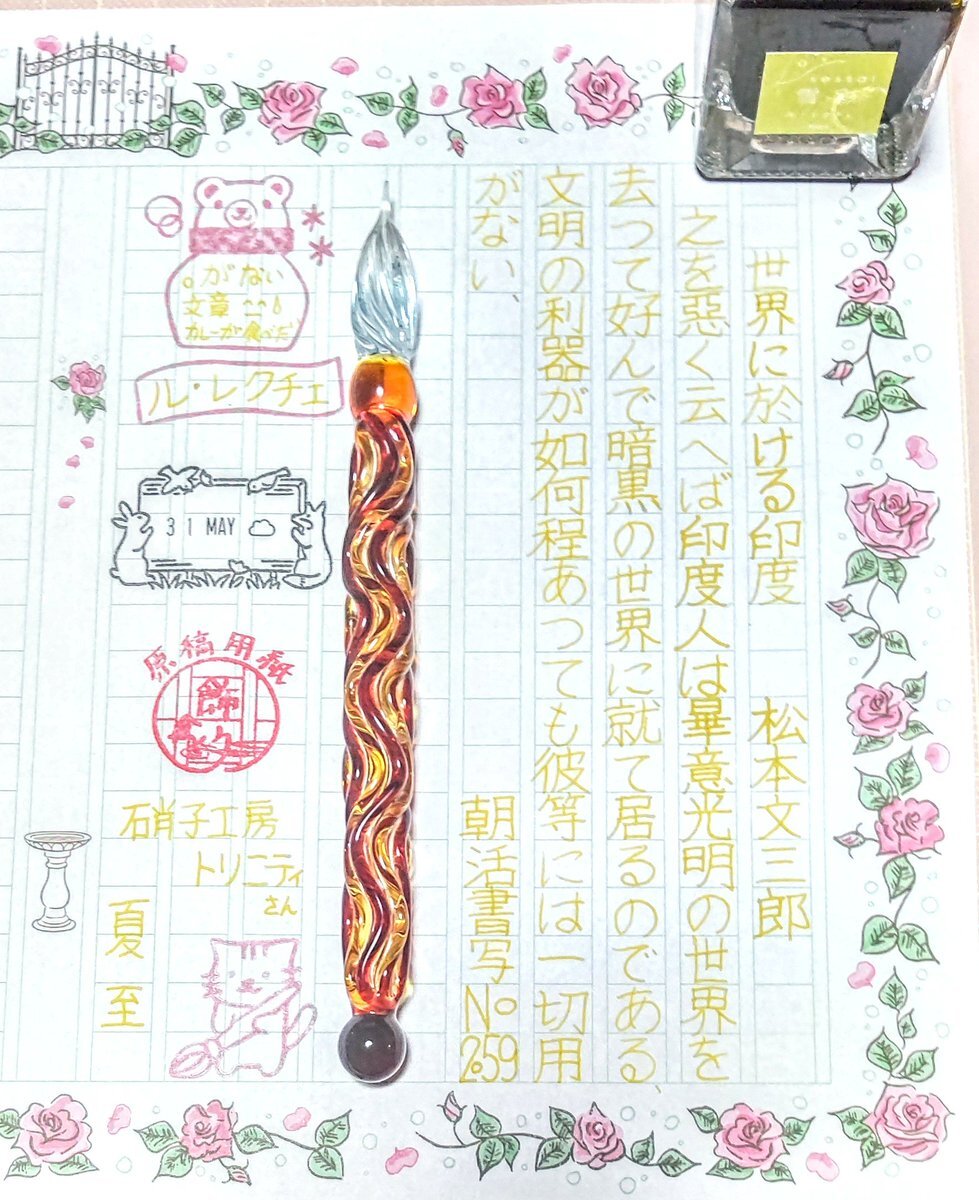 世界に於ける印度　松本文三郎
之を惡く云へば印度人は畢意光明の世界を
去つて好んで暗黒の世界に就て居るのである
文明の利器が如何程あつても彼等には一切用
がない、
朝活書写No.259
。がない
文章
カレーが食べたい
ル・レクチェ
31 MAY
原稿用紙
硝子工房
トリニティ
さん
夏至